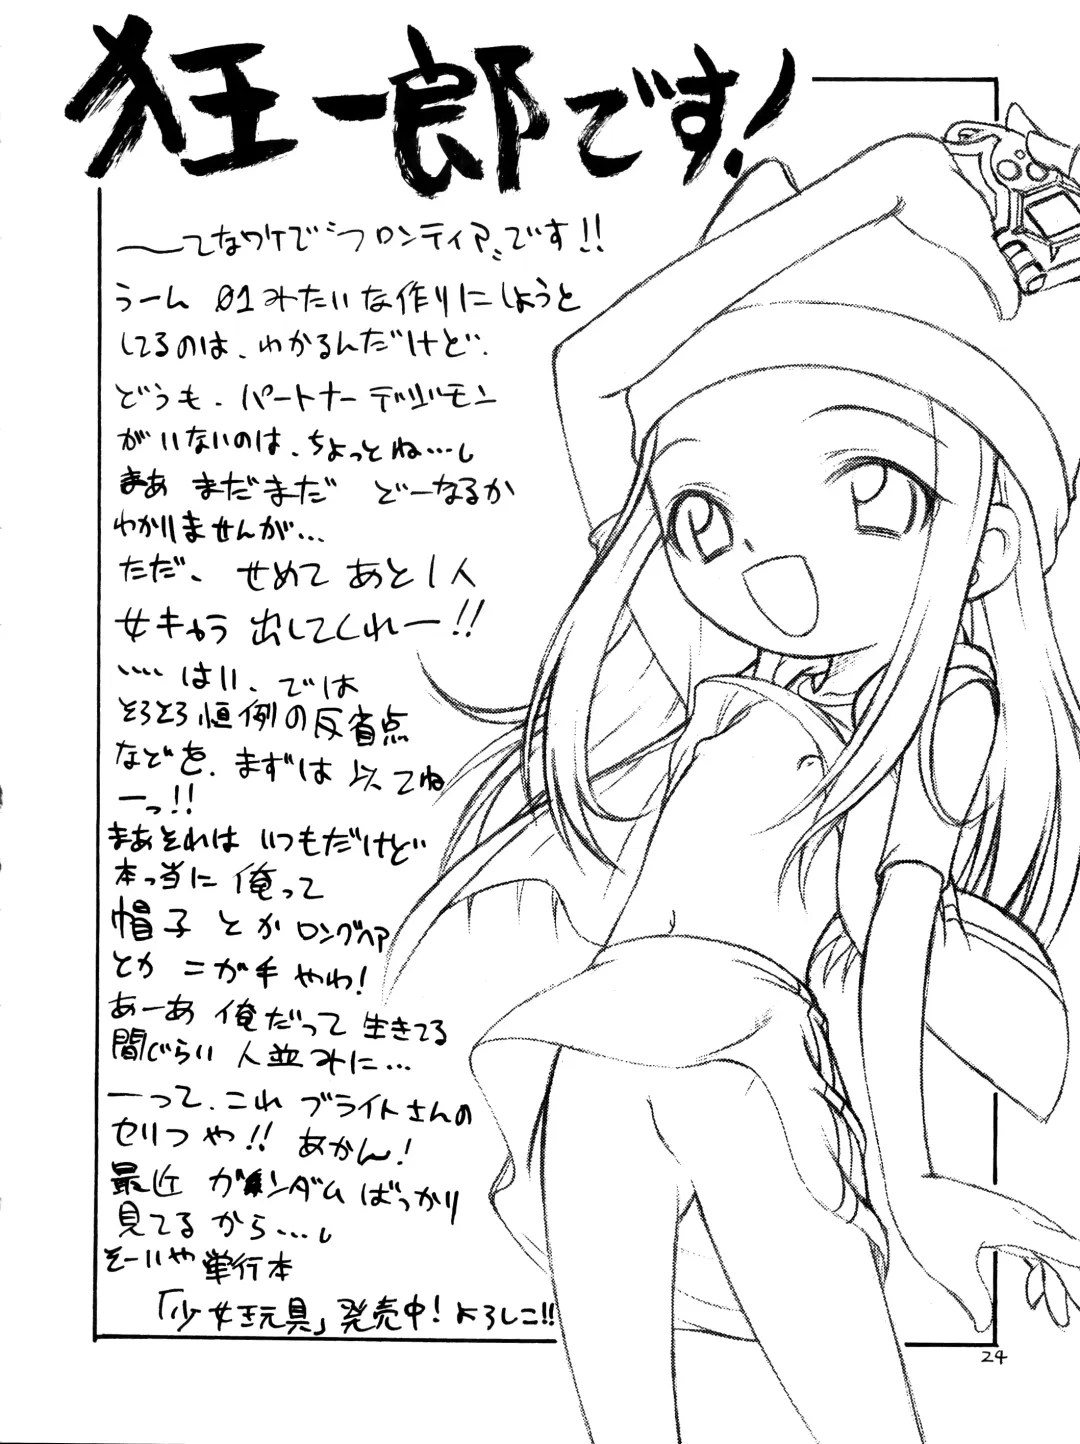 狂一郎です!
〜〜てなワケで“フロンティア”です!!
うーん 01みたいな作りにしようと
してるのは、わかるんだけど、
どうも、パートナーデジモン
がいないのは、ちょっとね…し
まあ まだまだ どーなるか
わかりませんが…
ただ、せめてあと1人
女キャラ出してくれー!!
…はい、では
そろそろ恒例の反省点
などを、まずは以てね
ーっ!!
まあそれは いつもだけど
本っ当に俺って
帽子とかロングヘア
とか ニガ手やわ!
あーあ 俺だって 生きてる
間じらい 人並みに…
ーって、これ ブライトさんの
セリフや!! あかん!
最近 ガンダムばっかり
見てるから…し
そーいや 単行本
「少女玩具」発売中!よろしこ!!
24